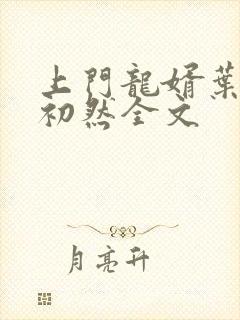 上門龍婿葉
初然全文
月亮升